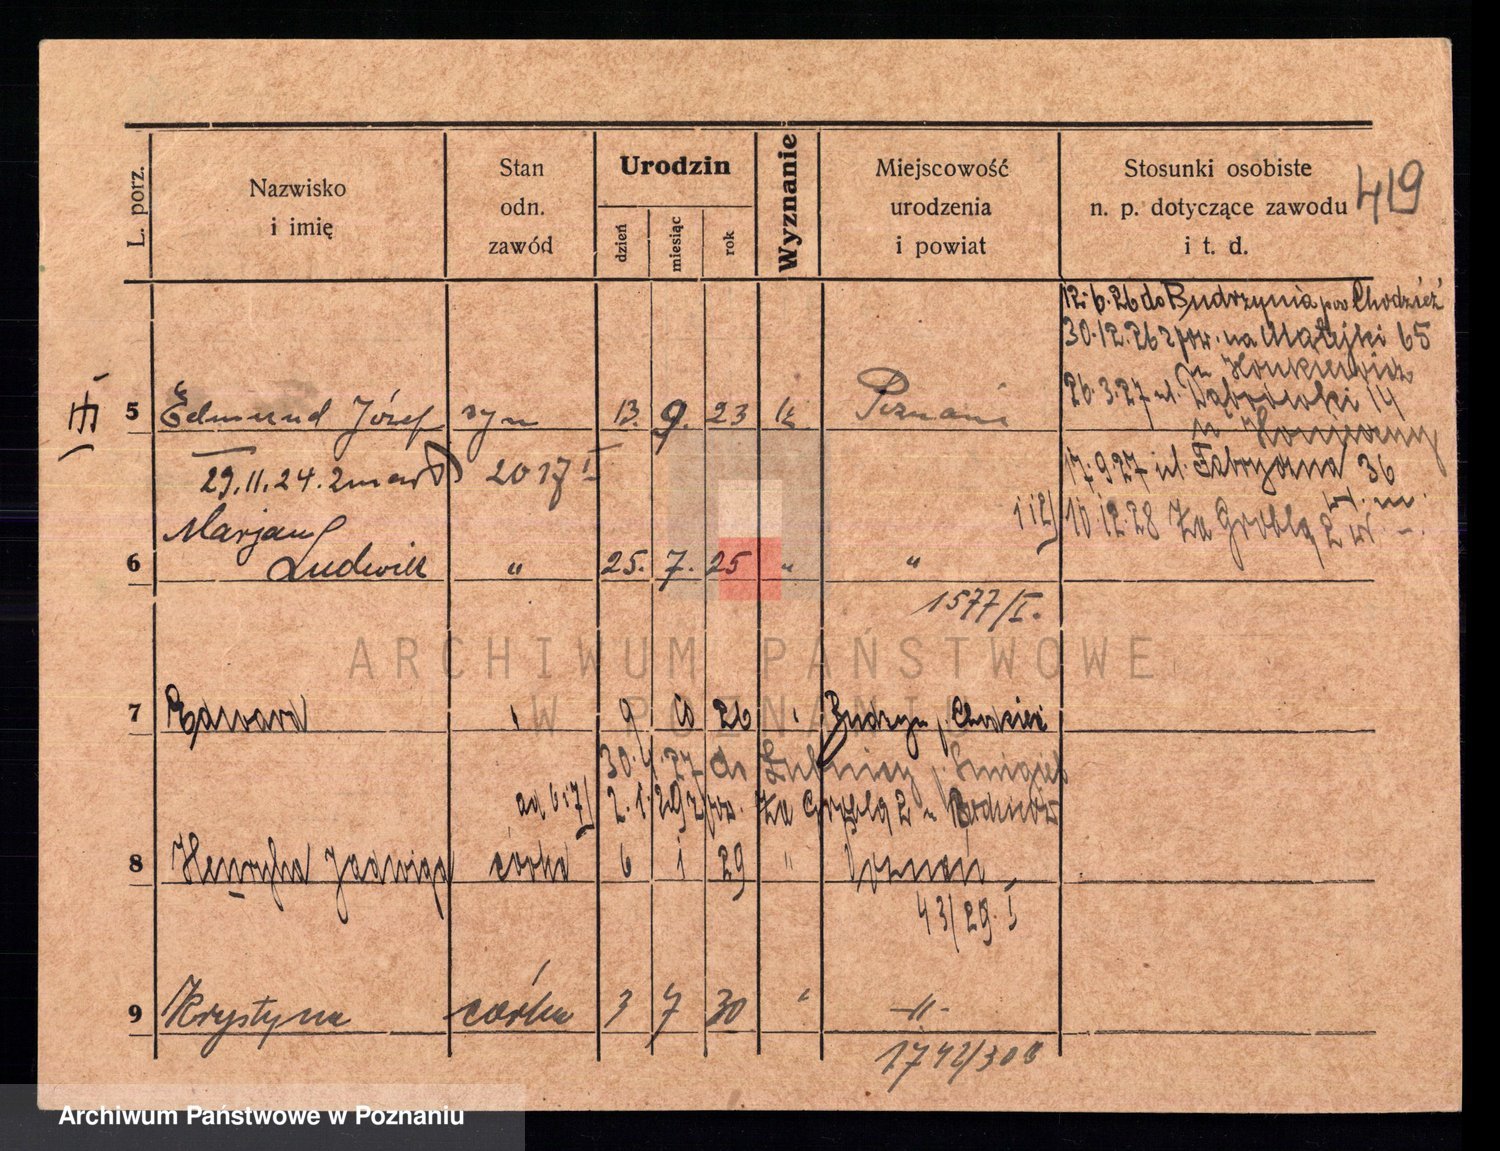 L. porz.
Nazwisko
i imię
Stan
odn.
zawód
Urodzin
dzień
miesiąc
rok
Wyznanie
Miejscowość
urodzenia
i powiat
Stosunki osobiste
n. p. dotyczące zawodu
i t. d.
419
12.6.26 do Budrzynia pow Chodzież
30.12.26 z pow. na Małejki 65
26.3.27 ul. Dąbrowski 14
III 5 Edmund Józef syn 13. 9. 23 k. Poznań
29.11.24. zmarł 2017 I
17.9.27 ul. Fabryczna 36
1 i 2) 10.12.28 Za Groblą 2
6 Marjan
Ludwik " 25. 7. 25 " "
1577/I.
7 Edward 9 10 26 Budzyn p. Chodzież
30.4.27 do
2.1.29 z pow. Za Groblą 2
8 Henryka Jadwiga córka 6 1 29 " Poznań
43/29. I
9 Krystyna córka 3 7 30 " -"-
1742/30
ARCHIWUM PAŃSTWOWE
W POZNANIU
Archiwum Państwowe w Poznaniu